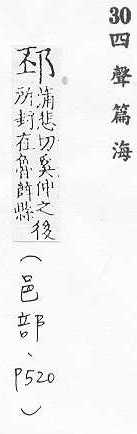 30四聲篇海
邳蒲悲切奚仲之後
所封在魯薛縣
(邑部、p520)